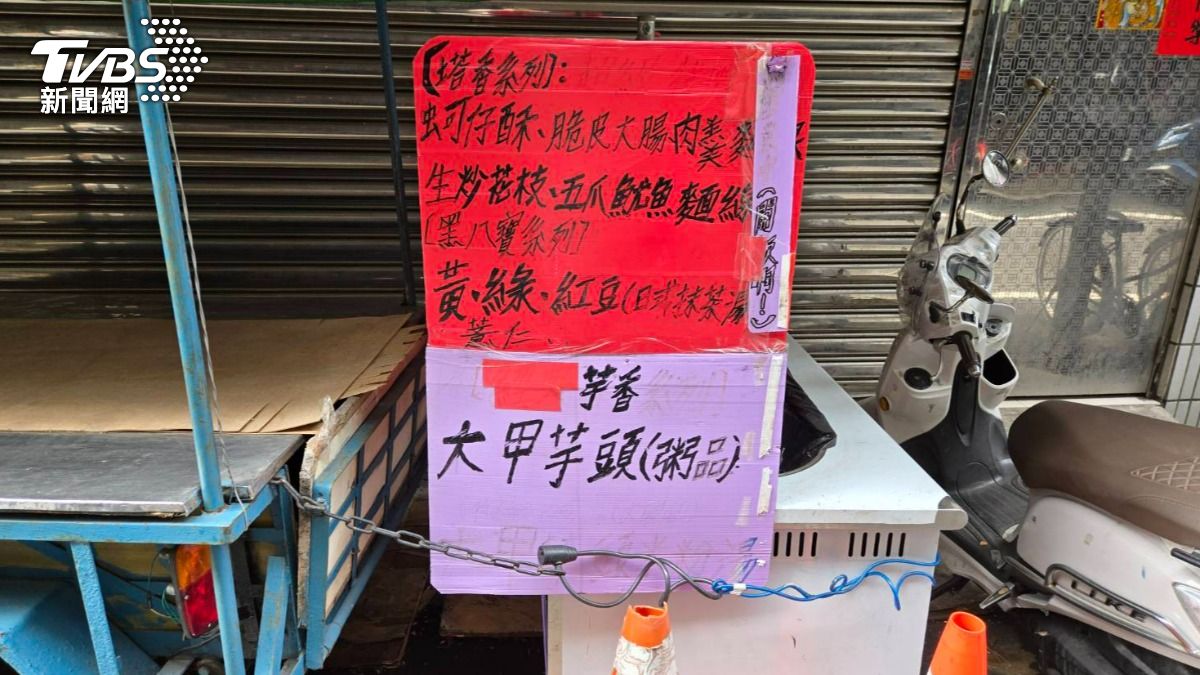 TVBS
新聞網
【塔香系列】:
蚵仔酥、脆皮大腸肉羹麵
生炒花枝、五爪魷魚麵線
[黑八寶系列]
黃、綠、紅豆(日式抹茶湯
薏仁、..
(開
嗎!)
芋香
大甲芋頭(粥品)